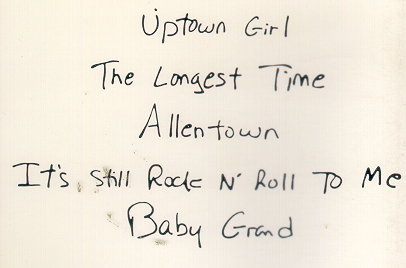 Uptown Girl
The Longest Time
Allentown
It's Still Rock N' Roll To Me
Baby Grand